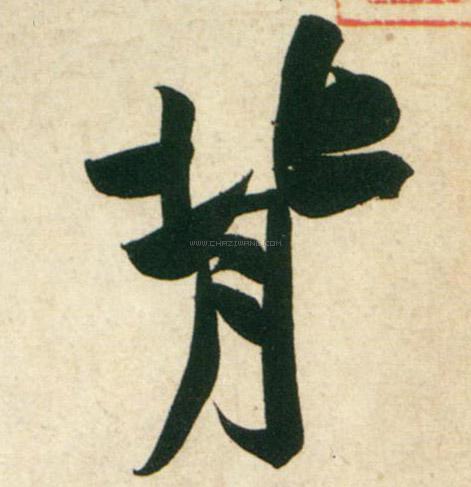 背
WWW.CHAZIWANG.COM